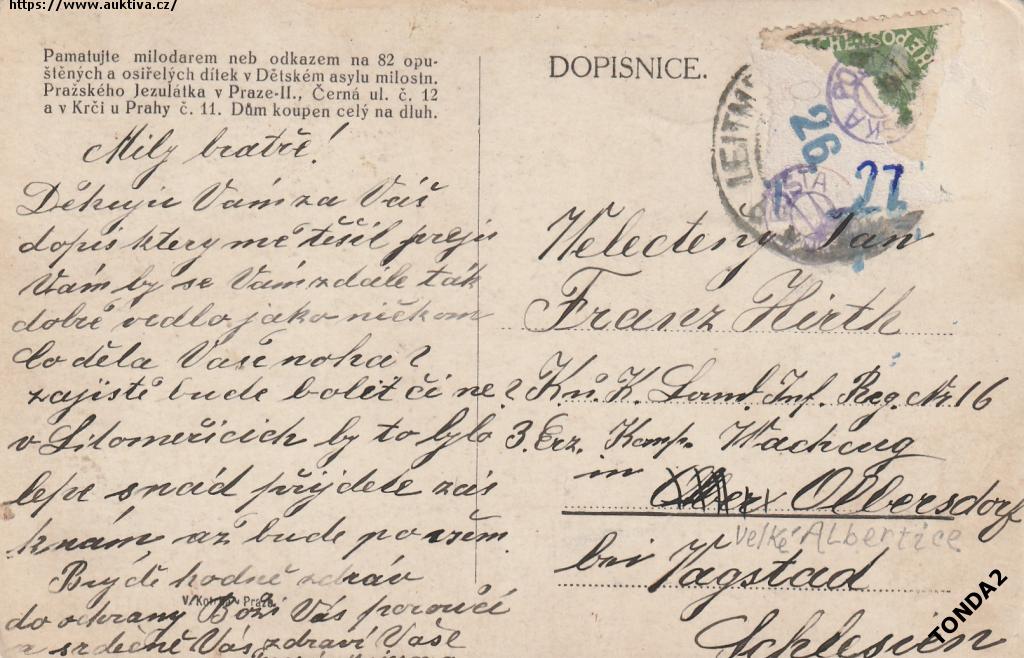 https://www.auktiva.cz/
Pamatujte milodarem neb odkazem na 82 opu-
štěných a osiřelých dítek v Dětském asylu milostn.
Pražského Jezulátka v Praze-II., Černá ul. č. 12
a v Krči u Prahy č. 11. Dům koupen celý na dluh.
DOPISNICE.
LEITM
26
27
Milý bratře!
Děkuju Vám za Váš
dopis ktery mě těšil přeju
Vám by se Vám zdále ták
dobře vedlo jako ničkom
Co děla Vaše noha?
zajistě bude bolet či ne?
v Litoměřicich by to bylo
lepe snád přijdete zás
k nám až bude po všem.
Buďte hodně zdráv
do ochrany Boží Vás poroučí
a srdečně Vás zdraví Vaše
V. Kotrba Praze.
Velectěny Pan
Franz Hirth
K. u. K. Landf. Inf. Reg. Nr. 16
3. Erz. Komp. Wachzug
in Olbersdorf
Velké Albertice
bei Vagstad
Schlesien
TONDA2